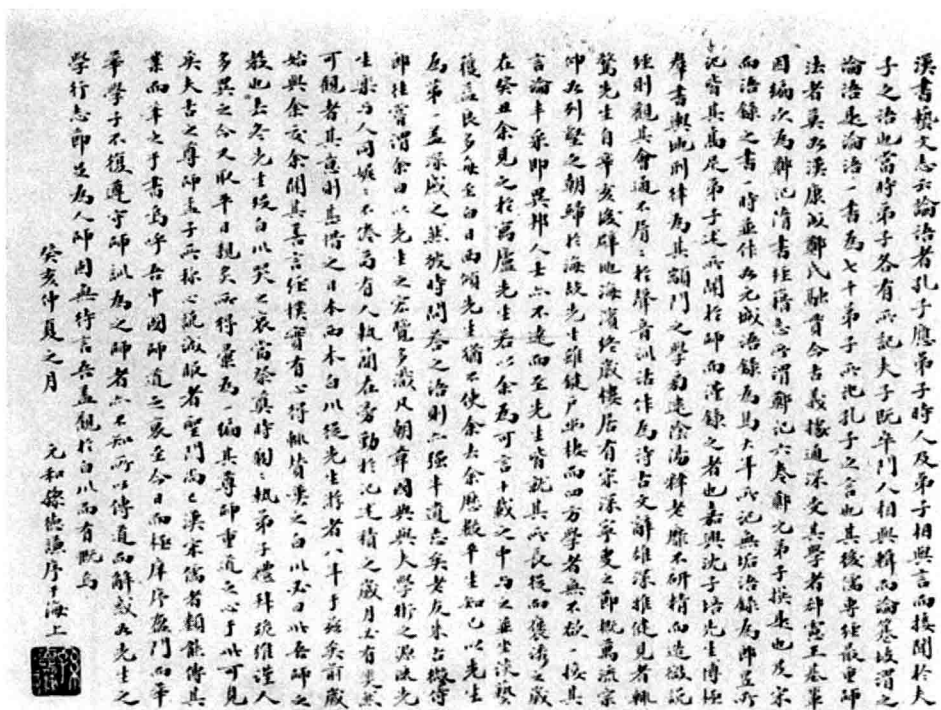 漢書藝文志云論語者孔子應弟子時人及弟子相與言而接聞於夫
子之語也當時弟子各有所記夫子既卒門人相與輯而論篹故謂之
論語是論語一書為七十弟子所記孔子之言也其後儒專經最重師
法者莫如漢康成鄭氏融貫今古義據通深及其學者郗慮王基輩
因編次為鄭記隋書經籍志所謂鄭記六卷鄭元弟子撰是也及宋
而語錄之書一時並作如元城語錄為馬大年所記無垢語錄為郎昱所
記皆其高足弟子述所聞於師而謹錄之者也嘉興沈子培先生博極
羣書輿地刑律為其顓門之學旁逮陰陽釋老靡不研精而造微說
經則觀其會通不屑屑於聲音訓詁作為詩古文辭雄深雅健見者輒
驚先生自辛亥後辟地海濱終歲樓居有宗深寧叟之節概萬流宗
仰如列壑之朝歸於海故先生雖鍵戶幽棲而四方學者無不欲一接其
言論丰采即異邦人士亦不遠而至先生皆就其所長從而獎誘之歲
在癸丑余見之於寓廬先生若以余為可言十載之中與之並坐談藝
獲益良多每至白日西頹先生猶不使余去余歷數平生知己以先生
為第一蓋深感之然彼時問答之語則亦強半遺忘矣老友朱古微侍
郎往嘗謂余曰以先生之宏覽多識凡朝章國典與大學術之源流先
生樂與人同娓娓不倦苟有人執簡在旁勤於記述積之歲月必有斐然
可觀者其意則甚惜之日本西本白川從先生游者八年于茲矣前歲
始與余交余聞其善言經樸實有心得輒贊美之白川必曰此吾師之
教也去冬先生歿白川哭之哀當祭奠時猶猶執弟子禮拜跪維謹人
多異之今又取平日親炙所得彙為一編其尊師重道之心于此可見
矣夫古之尊師孟子所稱心說誠服者聖門尚已漢宋儒者類能傳其
業而筆之于書嗚呼吾中國師道之衰至今日而極庠序盈門而莘
莘學子不復遵守師訓為之師者亦不知所以傳道而解惑如先生之
學行志節足為人師固無待言吾蓋觀於白川而有慨焉
癸亥仲夏之月　元和孫德謙序于海上